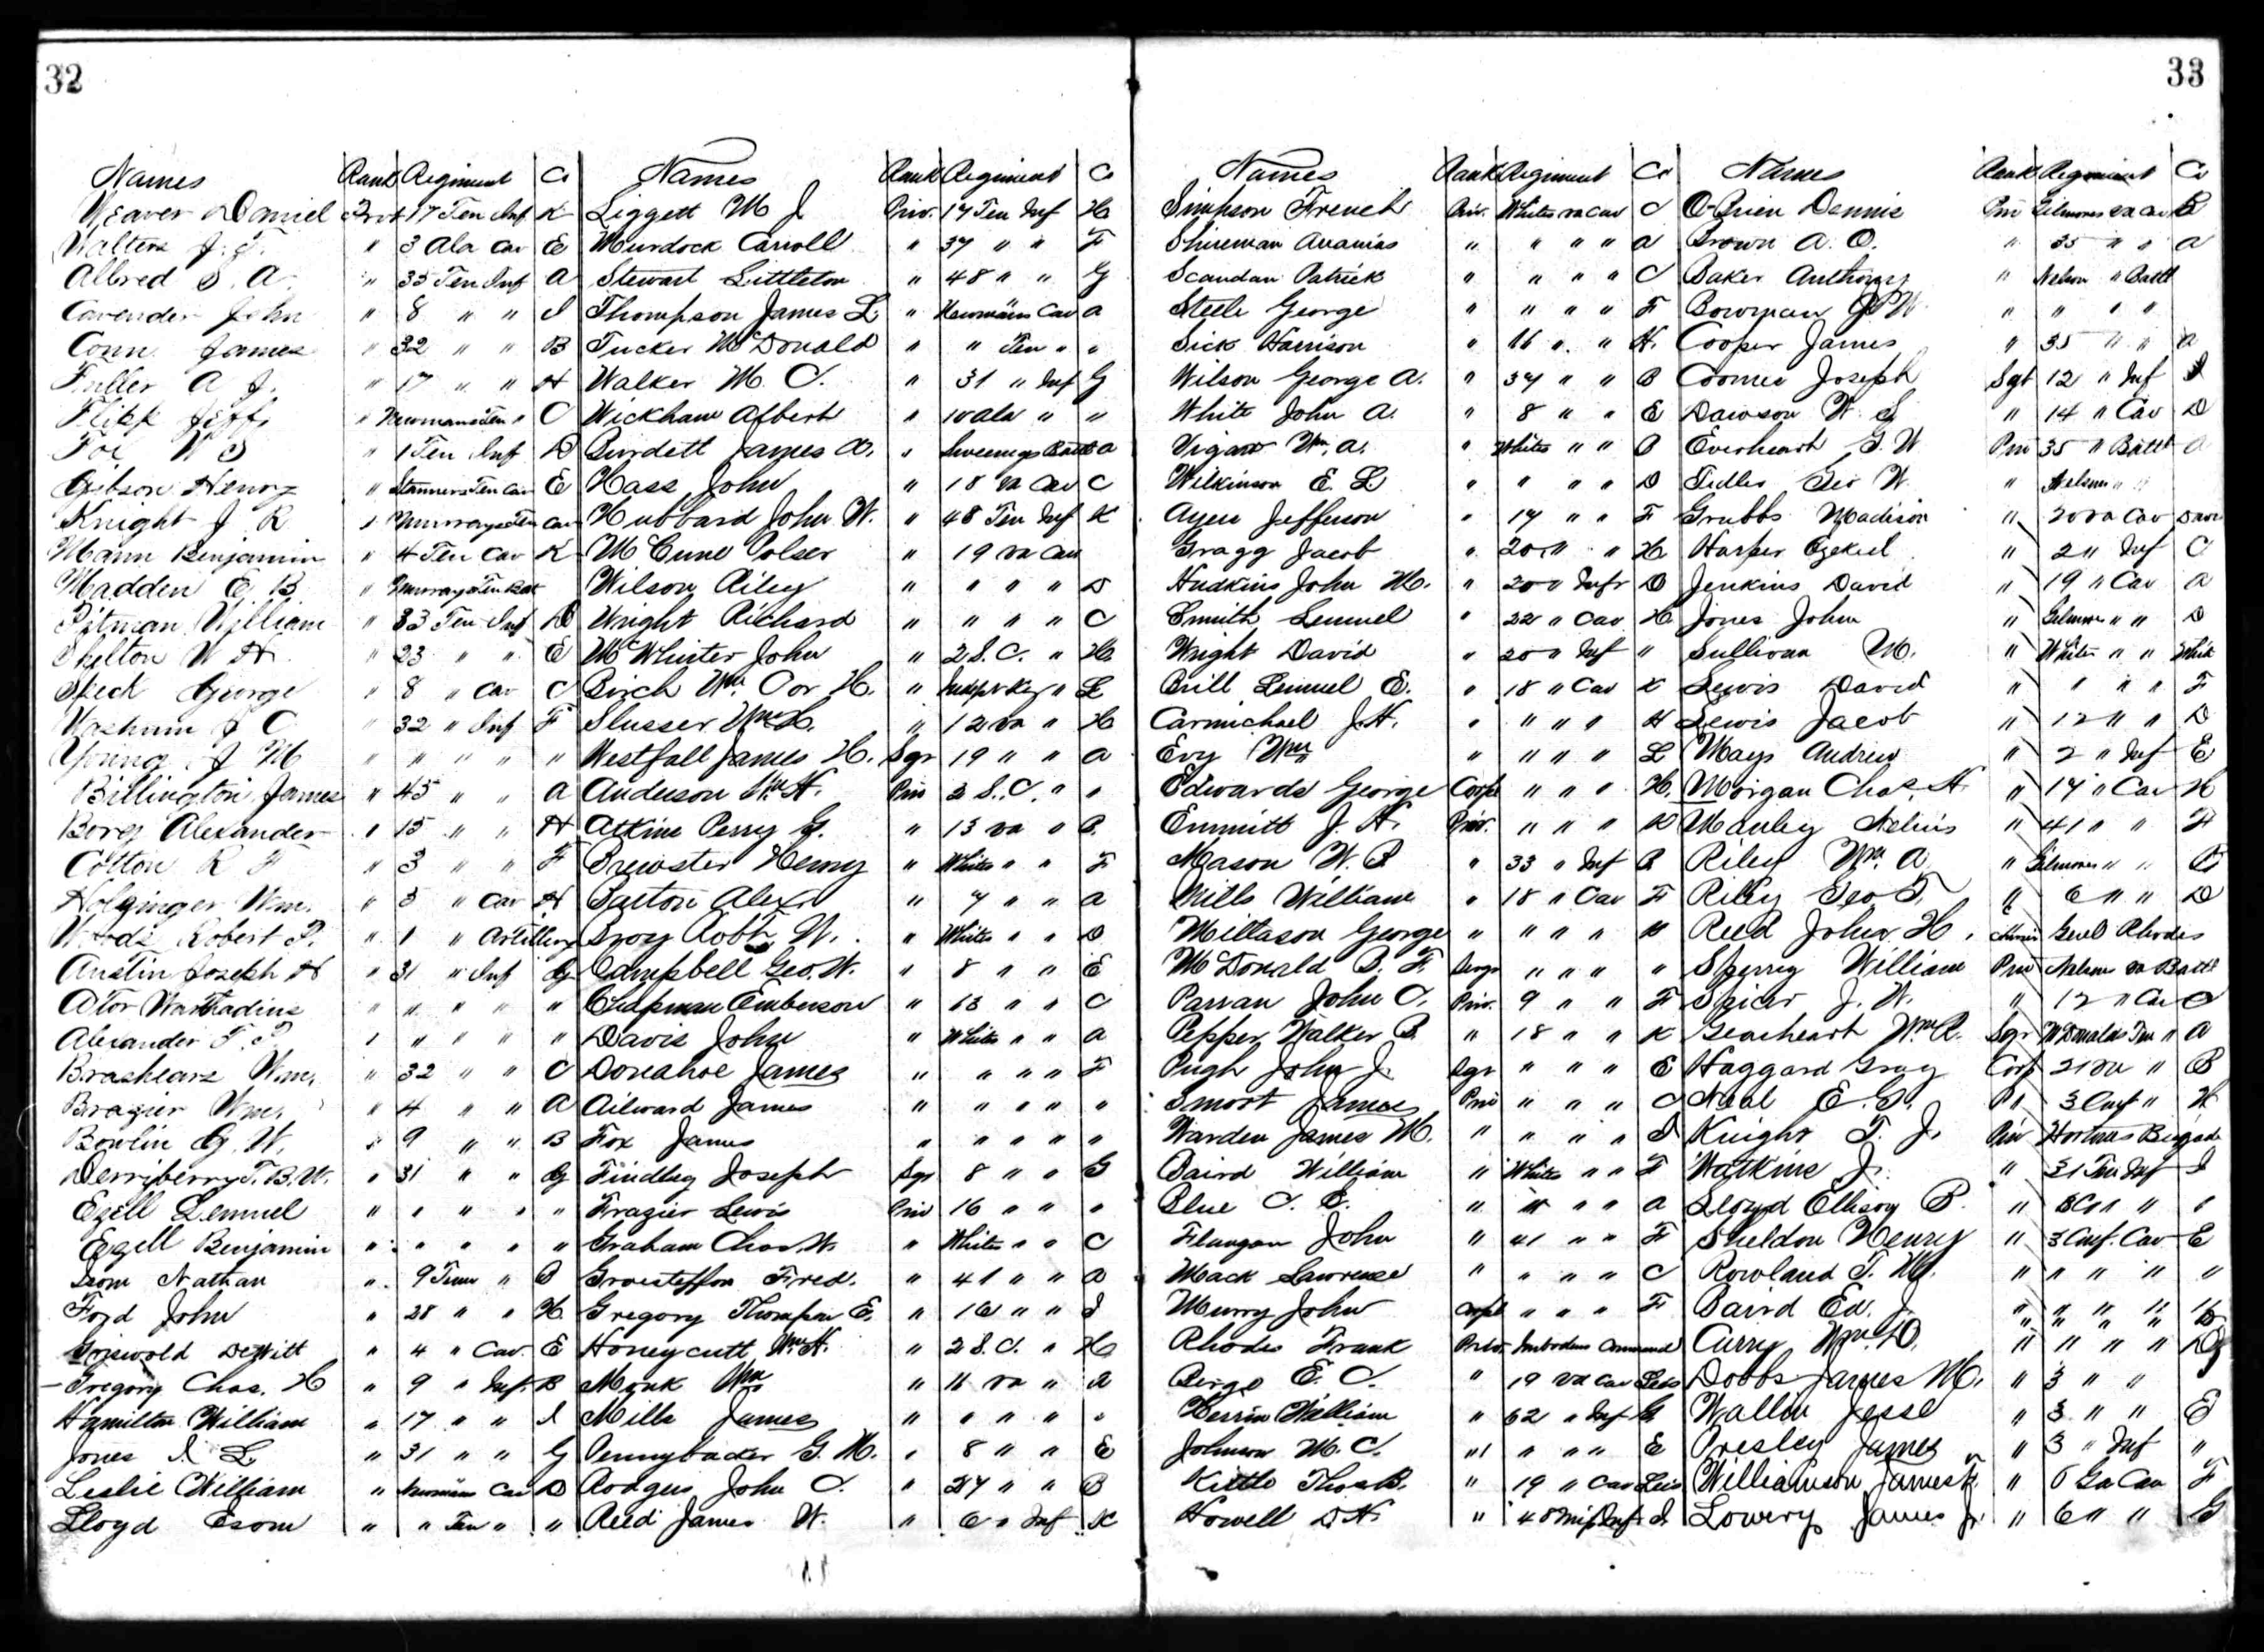 32
Names Rank Regiment Co
Weaver Daniel Privt 17 Ten Inf K
Walters J. F. " 3 Ala Cav E
Albred S. A. " 35 Ten Inf A
Cavender John " 8 " " I
Conn James " 32 " " B
Fuller A J. " 17 " " H
Flipp Jeff " Newmans Ten " C
Fox W S " 1 Ten Inf D
Gibson Henry " Stanners Ten Cav E
Knight J R " Murrays Ten Cav
Mann Benjamin " 4 Ten Cav K
Madden E. B. " Murrays Ten Batt
Pitman William " 33 Ten Inf D
Skelton W H. " 23 " " E
Speck George " 8 " Cav C
Vashum J C " 32 " Inf F
Young J M " " " " "
Billington James " 45 " " A
Boren Alexander " 15 " " H
Cotton R F " 3 " " F
Holginger Wm. " 5 " Cav H
Woods Robert P. " 1 " Artillery
Austin Joseph H " 31 " Inf G
Ator " " " " "
Alexander F. P. " " " " "
Brashears Wm. " 32 " " C
Brazier Wm. " 4 " " A
Bowlin G. W. " 9 " " B
Derryberry T. B. W. " 31 " " G
Ezell Lemuel " " " " "
Ezell Benjamin " " " " "
Isom Nathan " 9 Tenn " B
Ford John " 28 " " H
Griswold DeWitt " 4 " Cav. E
Gregory Chas. H " 9 " Inf. B
Hamilton William " 17 " " I
Jones I. L. " 31 " " G
Leslie William " Newmans Cav D
Lloyd Esom " " Ten " "
Names Rank Regiment Co
Liggett M J Priv. 17 Ten Inf H
Murdock Carroll " 37 " " F
Stewart Littleton " 48 " " G
Thompson James L " Newmans Cav A
Tucker McDonald " " Ten " "
Walker M. C. " 31 " Inf G
Wickham Albert " 10 Ala " "
Burdett James A. " Sweeneys Batt A
Hass John " 18 Va Cav C
Hubbard John W. " 48 Ten Inf K
McCune Polser " 19 Va Cav
Wilson Riley " " " " D
Wright Richard " " " " C
McWhirter John " 2 S.C. " H
Birch Wm. Cor H. " Indpt Ky " L
Slusser Wm H. " 12 Va " H
Westfall James H. Sgr 19 " " A
Anderson Wm H. Priv 2 S.C. " "
Atkins Perry G. " 13 Va " B
Brewster Henry " Whites " " F
Batton Alex " 7 " " A
Robt W. " Whites " " D
Campbell Geo. W. " 8 " " E
Chapman Emberson " 13 " " C
Davis John " Whites " " A
Donahoe James " " " " F
Ailward James " " " " "
Fox James " " " " "
Findley Joseph Sgr 8 " " G
Frazier Lewis Priv 16 " " "
Graham Chas. W. " Whites " " C
Fred. " 41 " " A
Gregory Thompson E. " 16 " " I
Honeycutt Wm H. " 2 S.C. " H
Monk Wm " 11 Va " A
Mills James " " " " "
Pennybacker G. M. " 8 " " E
Rodgers John C. " 27 " " B
Reed James W. " 6 " Inf K
33
Names Rank Regiment Co
Simpson French Priv. Whites Va Cav C
Shireman Ananias " " " " A
Scandan Patrick " " " " C
Steele George " " " " F
Sick Harrison " 16 " " H.
Wilson George A. " 37 " " B
White John A. " 8 " " E
Vigar Wm. A. " Whites " " B
Wilkinson E. L " " " " D
Ayers Jefferson " 17 " " F
Gragg Jacob " 20 " " H
Hudkins John M. " 20 " Inf D
Smith Lemuel " 22 " Cav H
Wright David " 20 " Inf "
Brill Lemuel E. " 18 " Cav K
Carmichael J. H. " " " " H
Evy Wm " " " " L
Edwards George Corpl " " " H.
Emmitt J. H. Priv. " " " K
Mason W. B " 33 " Inf B
Mills William " 18 " Cav F
Millason George " " " " K
McDonald B. F. Sergt " " " "
Parran John C. Priv. 9 " " F
Pepper Walker B. " 18 " " K
Pugh John J. Sgr " " " E
Smort James Priv " " " C
Warden James M. " " " " I
Baird William " Whites " " F
Blue C. C. " " " " A
Flangan John " 41 " " F
Mack Lawrence " " " " C
Murry John Corpl " " " F
Rhodes Frank Priv. Imbodens Command
E. C. " 19 Va Cav
Herrin William " 62 " Inf G
Johnson M. C. " " " " E
Kittle Thos B. " 19 " Cav
Howell D H. " 48 Mip Inf I
Names Rank Regiment Co
O'Brien Dennis Priv Gilmores Va Cav B
Brown A. O. " 35 " " A
Baker Anthony " Nelson " Battl
Bowman G. W. " " " "
Cooper James " 35 " " A
Coomes Joseph Sgt 12 " Inf I
Dawson W. S " 14 " Cav D
Everheart G. W Priv 35 " Battl A
Fidler Geo W. " Nelson " "
Grubbs Madison " 20 Va Cav
Harper Ezekiel " 2 " Inf C
Jenkins David " 19 " Cav A
Jones John " Gilmores " " D
Sullivan M. " Whites " "
Lewis David " " " " F
Lewis Jacob " 12 " " D
Mays Andrew " 2 " Inf E
Morgan Chas. H. " 17 " Cav K
Manley " 41 " " F
Riley Wm. A " Gilmores " "
Riley Geo T. " 6 " " D
Reed John H. Genl Rhodes
Sperry William Priv Nelson Va Battl
Spicer J. W. " 12 " Cav C
Gearheart Wm R. Sgr McDonalds Ten " A
Haggard Gray Corp 21 Va " B
Neal E. G. Pr 3 Conf " H
Knight T. J. Priv Brigade
Watkins J. " 31 Ten Inf I
Lloyd Ellison B. " 8 " "
Sheldon Henry " 3 Conf. Cav E
Rowland T. W. " " " " "
Baird Ed. J. " " " " "
Curry Wm. D. " " " " D
Dobbs James M. " 3 " " G
Wallin Jesse " 3 " " E
Presley James " 3 " Inf "
Williamson James F. " 6 Ga Cav F
Lowery James Jr. " 6 " " G